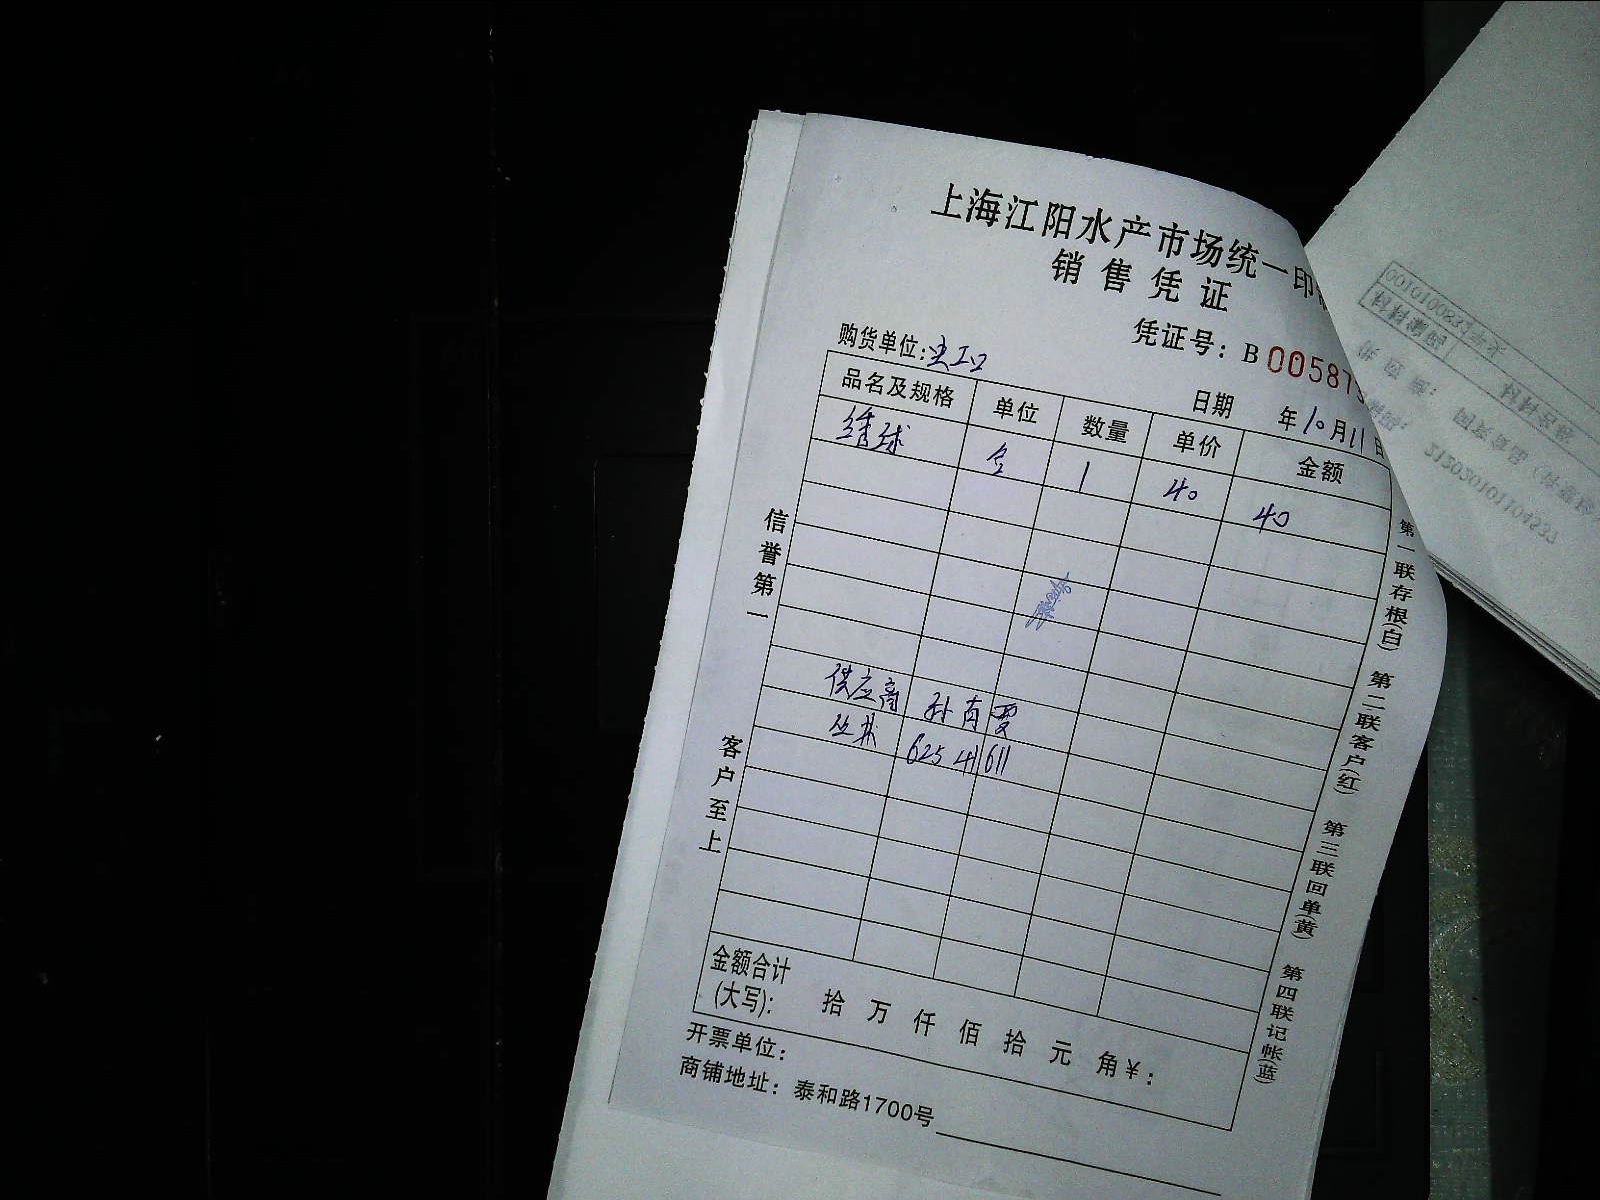 上海江阳水产市场统一印
销售凭证
凭证号：B 005875
购货单位：
日期 年10月11日
品名及规格 单位 数量 单价 金额
绣球 1 40 40
信誉第一
客户至上
供应商 孙
625 41611
金额合计
(大写)： 拾 万 仟 佰 拾 元 角 ￥：
开票单位：
商铺地址：泰和路1700号
第一联存根(白) 第二联客户(红) 第三联回单(黄) 第四联记帐(蓝)